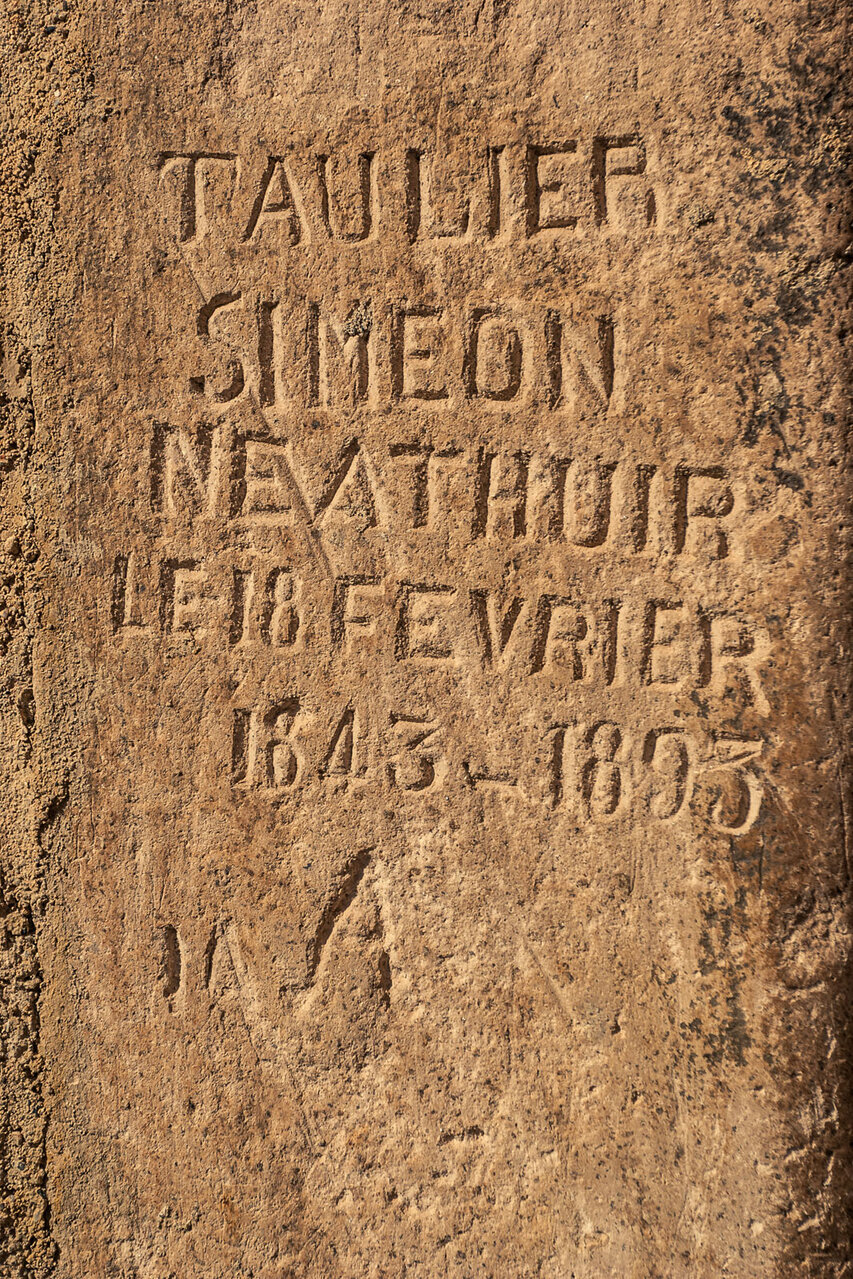 TAULIER
SIMEON
NE A THUIR
LE 18 FEVRIER
1843 - 1893